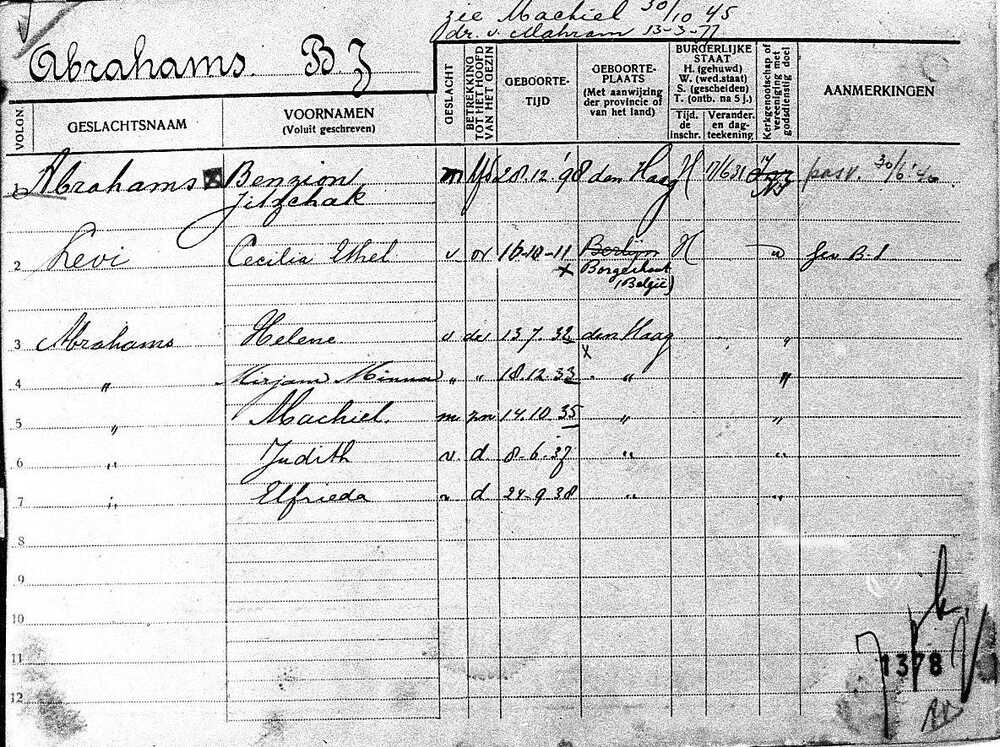 zie Machiel 30/10 '45
dr. v. Mahram 13-3-77
Abrahams. B J
VOLGN.
GESLACHTSNAAM
VOORNAMEN
(Voluit geschreven)
GESLACHT
BETREKKING TOT HET HOOFD VAN HET GEZIN
GEBOORTE-
TIJD
GEBOORTE-
PLAATS
(Met aanwijzing
der provincie of
van het land)
BURGERLIJKE
STAAT
H. (gehuwd)
W. (wed.staat)
S. (gescheiden)
T. (ontb. na 5 j.)
Tijd.
de
inschr.
Verander.
en dag-
teekening
Kerkgenootschap of vereeniging met godsdienstig doel
AANMERKINGEN
1 Abrahams Benzion m hfd 28.12 '98 den Haag H 17/6 31 pasv. 30/6'
Jitzchak
2 Levi Cecilia Ethel v 16-10-11 Berlijn H
x Borgerhout
(België)
3 Abrahams Helene v 13.7.32 den Haag "
x
4 " Mirjam Minna " " 18.12.33 " "
5 " Machiel. m zn 14.10.35 " "
6 " Judith v. d. 8-6-37 " "
7 " Elfrieda v d 24-9-38 " "
8
9
10
11
12
1378